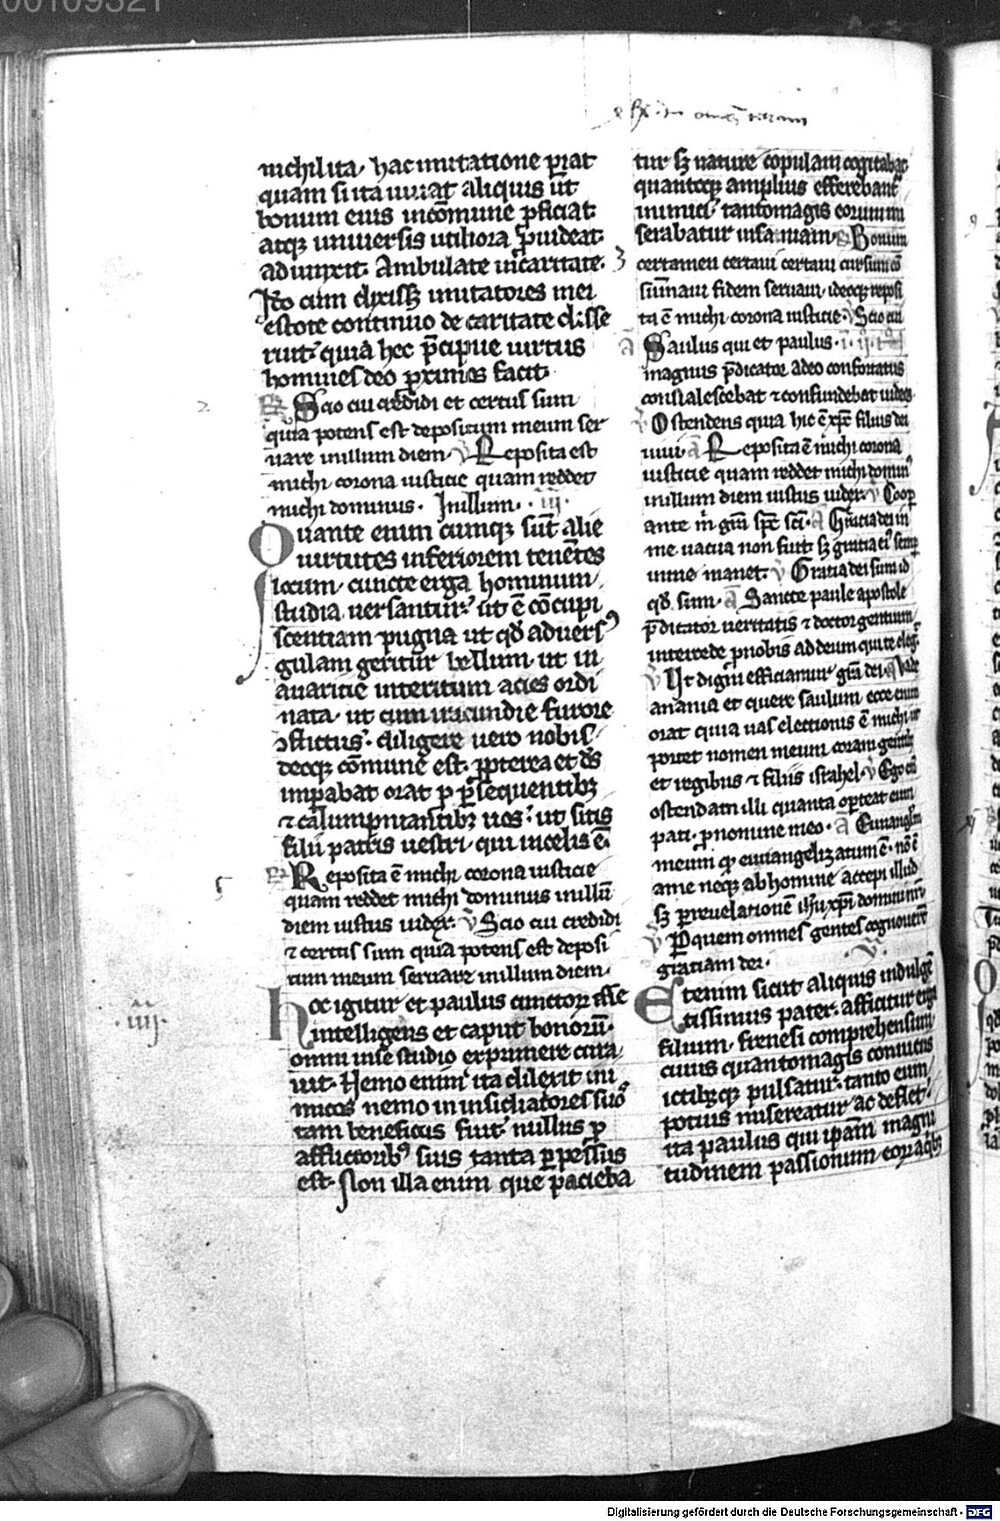 00109321
nichil ita. hac imitatione p̄at
quam si ita uiuat aliquis ut̄
bonum eius incōmune p̄ficiat
atqꝫ uniuersis utiliora p̄uideat.
adiunxit. Ambulate in caritate.
Jtō cum dixiss; imitatores mei
estote continuo de caritate disse
ruit. quia hec p̄cipue uirtus
homines deo p̄ximos facit.
Scio cui credidi et certus sum
quia potens est depositum meum ser
uare in illum diem. Reposita est
michi corona iusticie quam reddet
michi dominus. Jn illum. iii.
Quante enim cumqꝫ sūt alie
uirtutes inferiorem tenētes
locum. cuncte erga hominum
studia uersantur. ut ē cōcupi
scentiam pugna ut qd̄ aduers
gulam geritur bellum. ut in
auaritie interitum acies ordi
nata. ut cum iracundie furore
ꝯflictus. diligere uero nobis
deoqꝫ cōmune est. p̄pterea et dn̄s
imp̄abat orat p p̄sequentibꝫ
⁊ calumpniantibꝫ uos. ut sitis
filii patris uestri. qui in celis ē.
Reposita ē michi corona iusticie
quam reddet michi dominus in illū
diem iustus iudex. Scio cui credidi
⁊ certus sum quia potens est deposi
tum meum seruare in illum diem.
hoc igitur et paulus cunctoꝝ esse
intelligens et caput bonorū.
omni in se studio exprimere cura
uit. Nemo enim ita dilexit ini
micos nemo in insidiatores suo
tam beneficus fuit. nullus p
afflictoribꝫ suis tanta p̄pessus
est. Non illa enim que pacieba
.iiii.
tur sꝫ nature copulam cogitabat
quantoqꝫ amplius efferebant
inimici. tantomagis eorum mi
serabatur insaniam. Bonum
certamen certaui certaui cursum cō
sūmaui fidem seruaui. ideoqꝫ reposi
ta ē michi corona iusticie. Scio cui
Saulus qui et paulus.
magnus p̄dicator adeo confortatus
conualescebat ⁊ confundebat iudeos
Ostendens quia hic ē xp̄c filius dei
uiui. Reposita ē michi corona
iusticie quam reddet michi domin
in illum diem iustus iudex. Coop
ante m̄ gr̄m sp̄c sc̄i. Gratia dei in
me uacua non fuit. sꝫ gratia ei semp
in me manet. Gratia dei sum id
qd̄ sum. Sancte paule apostole
p̄dicator ueritatis ⁊ doctor gentium
intercede p nobis ad deum qui te eleg.
Ut digni efficiamur gr̄m dei. Uade
anania et quere saulum ecce enim
orat quia uas electionis ē michi ut
portet nomen meum coram gentib
et regibus ⁊ filiis israhel. Ego eni
ostendam illi quanta oporteat eum
pati p nomine meo. Euuangelm
meum qꝫ euuangelizatum ē. nō ē
ame neqꝫ ab homine accepi illud
sꝫ p reuelationē ih̄u xp̄i domini nr̄i
P quem omnes gentes cognouerūt
gratiam dei.
Etenim sicut aliquis indulgē
tissimus pater. afficitur erga
filium. frenesi comprehensum.
cuius quantomagis conuiciis
ictibꝫqꝫ pulsatur. tanto eum
potius misereatur ac deflet.
ita paulus qui ip̄am magni
tudinem passionum. eoꝝ a qibꝫ
Digitalisierung gefördert durch die Deutsche Forschungsgemeinschaft - DFG